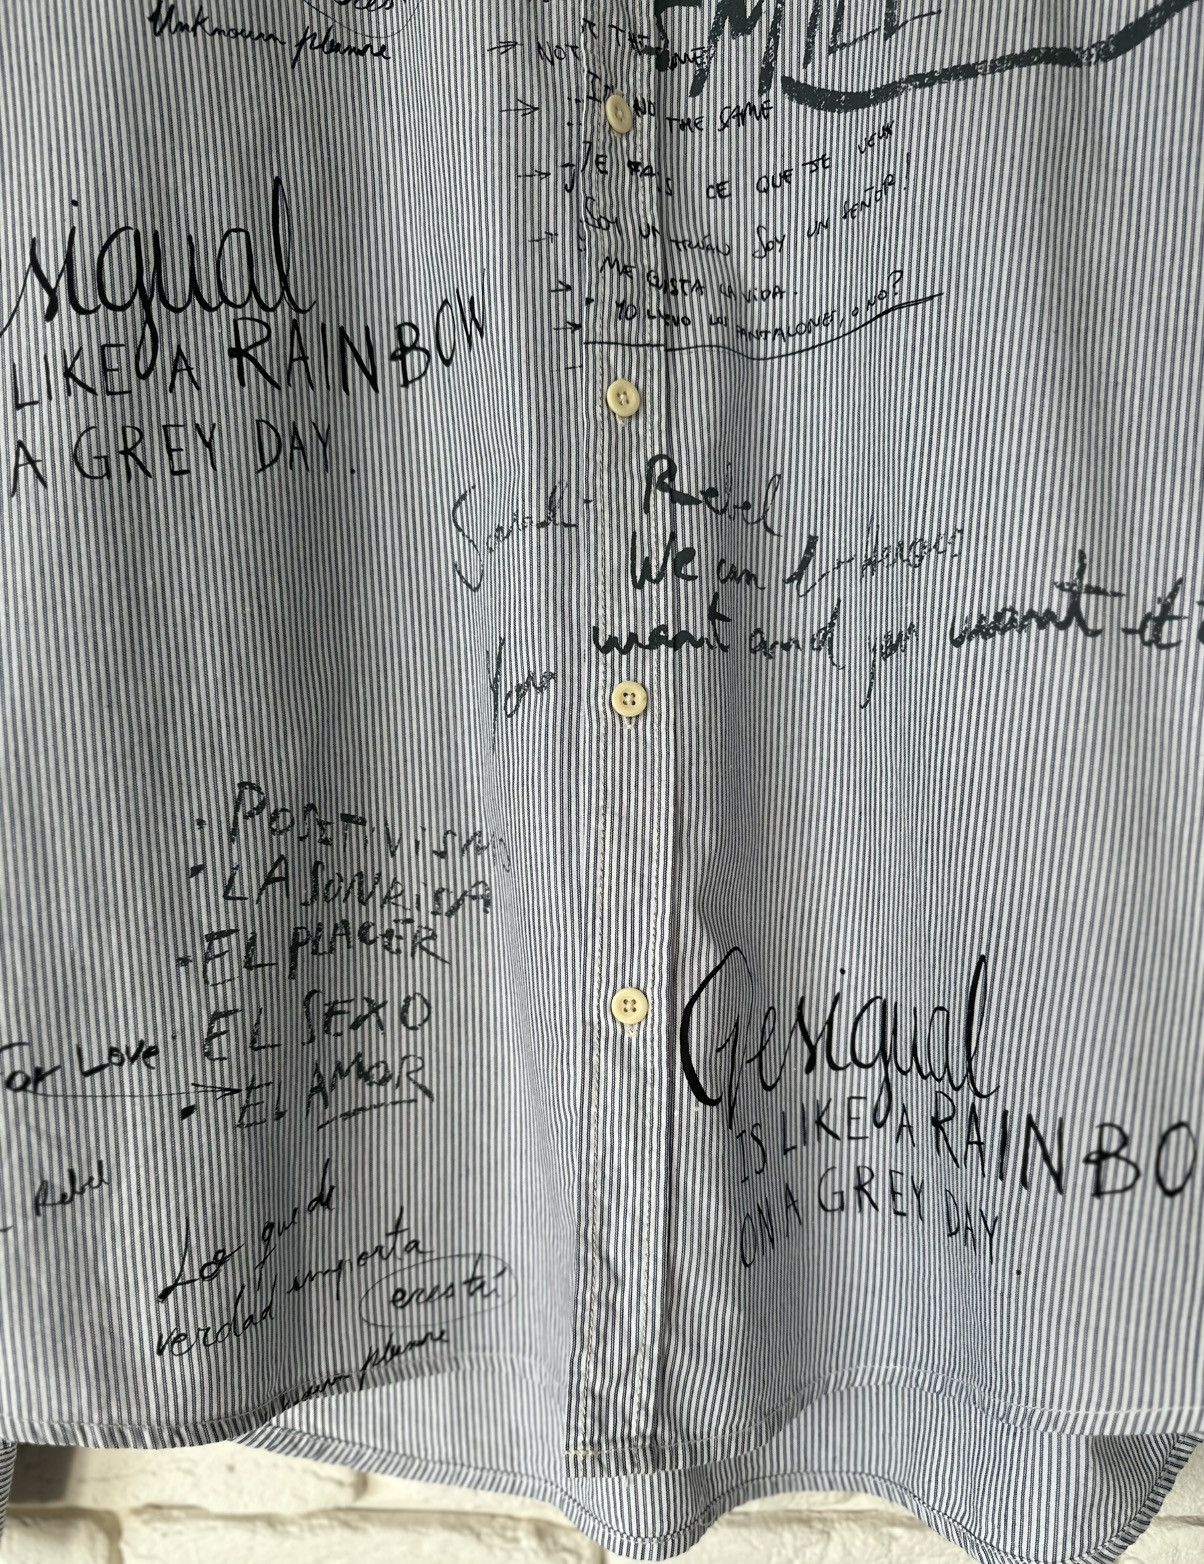 Unknown pleasure
SMILE
NOT THE SAME
I'M NOT THE SAME
JE FAIS CE QUE JE VEUX
SOY UN TRUÑO SOY UN SEÑOR!
ME GUSTA LA VIDA.
YO LLEVO LOS PANTALONES, O NO?
sigual
LIKE A RAINBOW
A GREY DAY.
Rebel
We can
You want and you want it
· POSITIVISMO
· LA SONRISA
· EL PLACER
EL SEXO
For Love
· EL AMOR
Rebel
Lo que de
verdad importa
eres tú
Desigual
IS LIKE A RAINBO
ON A GREY DAY.